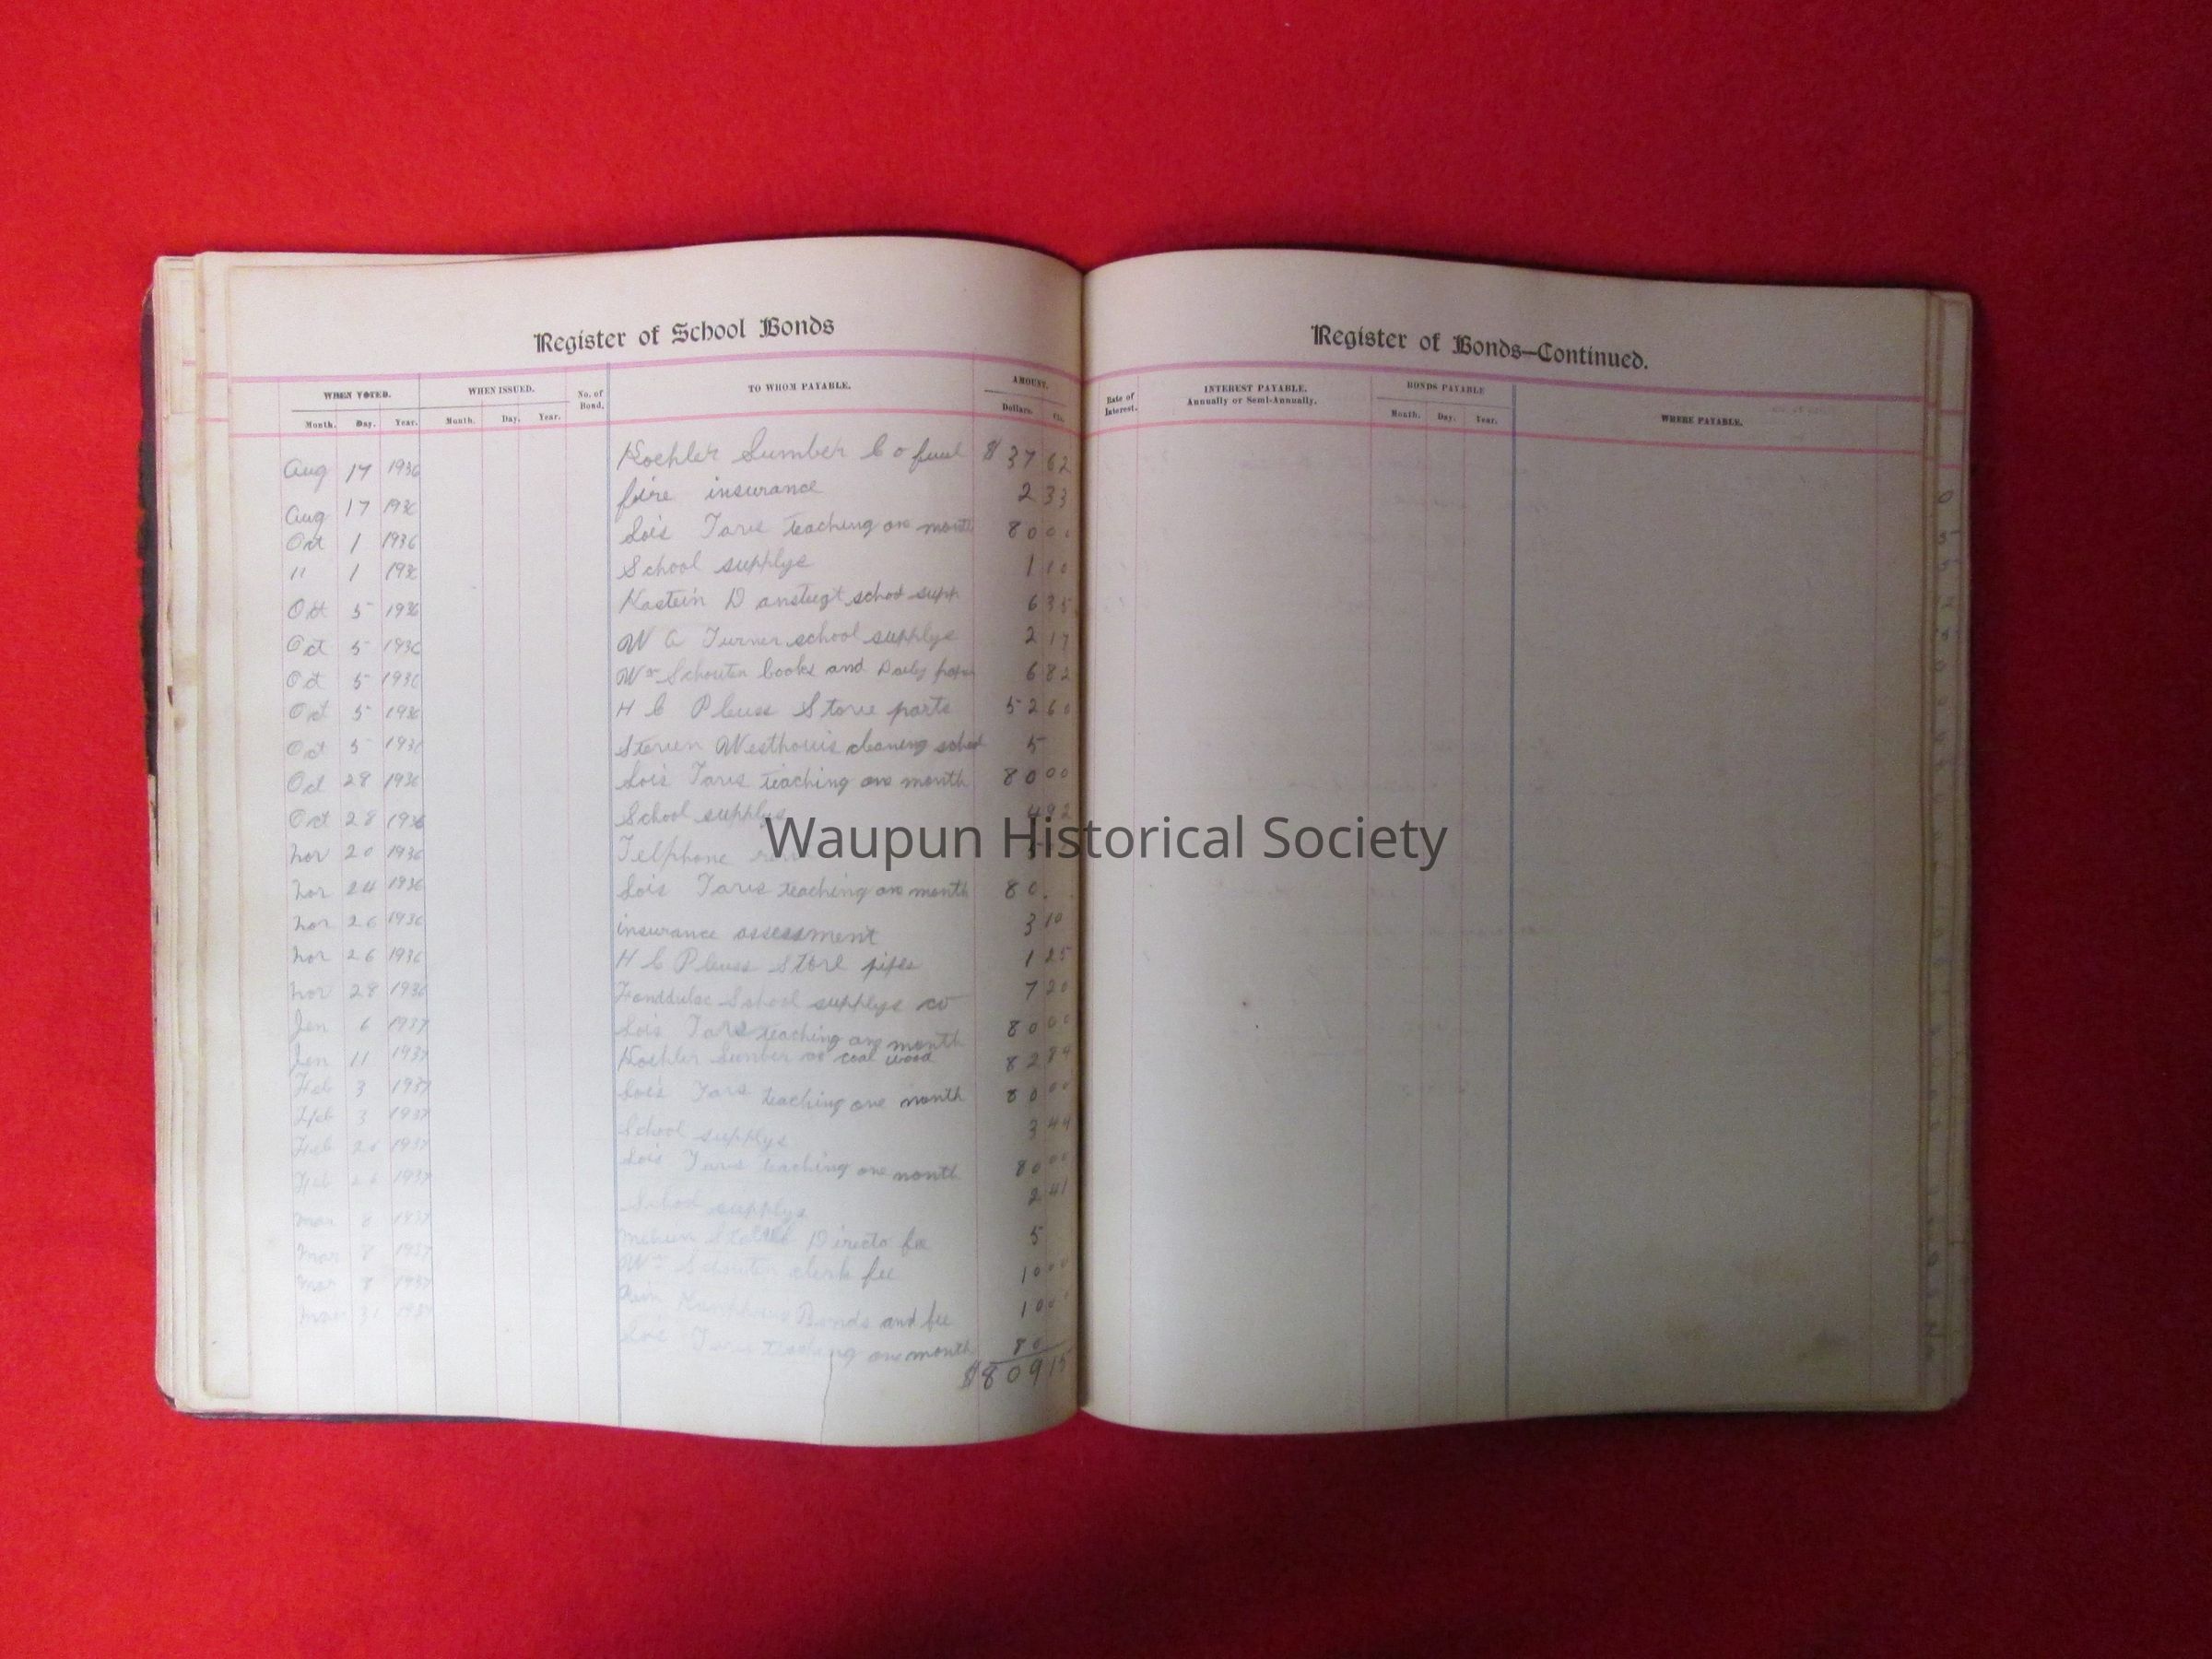 Register of School Bonds
WHEN VOTED. WHEN ISSUED. No. of Bond. TO WHOM PAYABLE. AMOUNT.
Month. Day. Year. Month. Day. Year. Dollars. Cts.
Aug 17 1936 Koehler Lumber Co fuel $ 37 62
Aug 17 1936 fire insurance 2 33
Oct 1 1936 Lois Taris teaching one month 80 00
" 1 1936 School supplys 1 10
Oct 5 1936 Kastein school supp 6 35
Oct 5 1936 W C Turner school supplys 2 17
Oct 5 1936 Wm Schouten books and Daily paper 6 82
Oct 5 1936 H C Pleuss Stove parts 52 60
Oct 5 1936 Westhouis cleaning school 5
Oct 28 1936 Lois Taris teaching one month 80 00
Oct 28 1936 School supplys 4 92
Nov 20 1936 Telphone
Nov 24 1936 Lois Taris teaching one month 80
Nov 26 1936 insurance assessment 3 10
Nov 26 1936 H C Pleuss Stove pipes 1 25
Nov 28 1936 Fonddulac School supplys co 7 20
Jan 6 1937 Lois Taris teaching one month 80 00
Jan 11 1937 Koehler Lumber co coal wood 82 84
Feb 3 1937 Lois Taris teaching one month 80 00
Feb 3 1937 School supplys 3 44
Feb 26 1937 Lois Taris teaching one month 80 00
Feb 26 1937 School supplys 2 41
Mar 8 1937 Directo fee 5
Mar 8 1937 Wm Schouten clerk fee 10 00
Mar 8 1937 Bonds and fee 10 00
Mar 31 1937 Lois Taris teaching one month 80
$809 15
Register of Bonds—Continued.
Rate of Interest. INTEREST PAYABLE. Annually or Semi-Annually. BONDS PAYABLE WHERE PAYABLE.
Month. Day. Year.
Waupun Historical Society